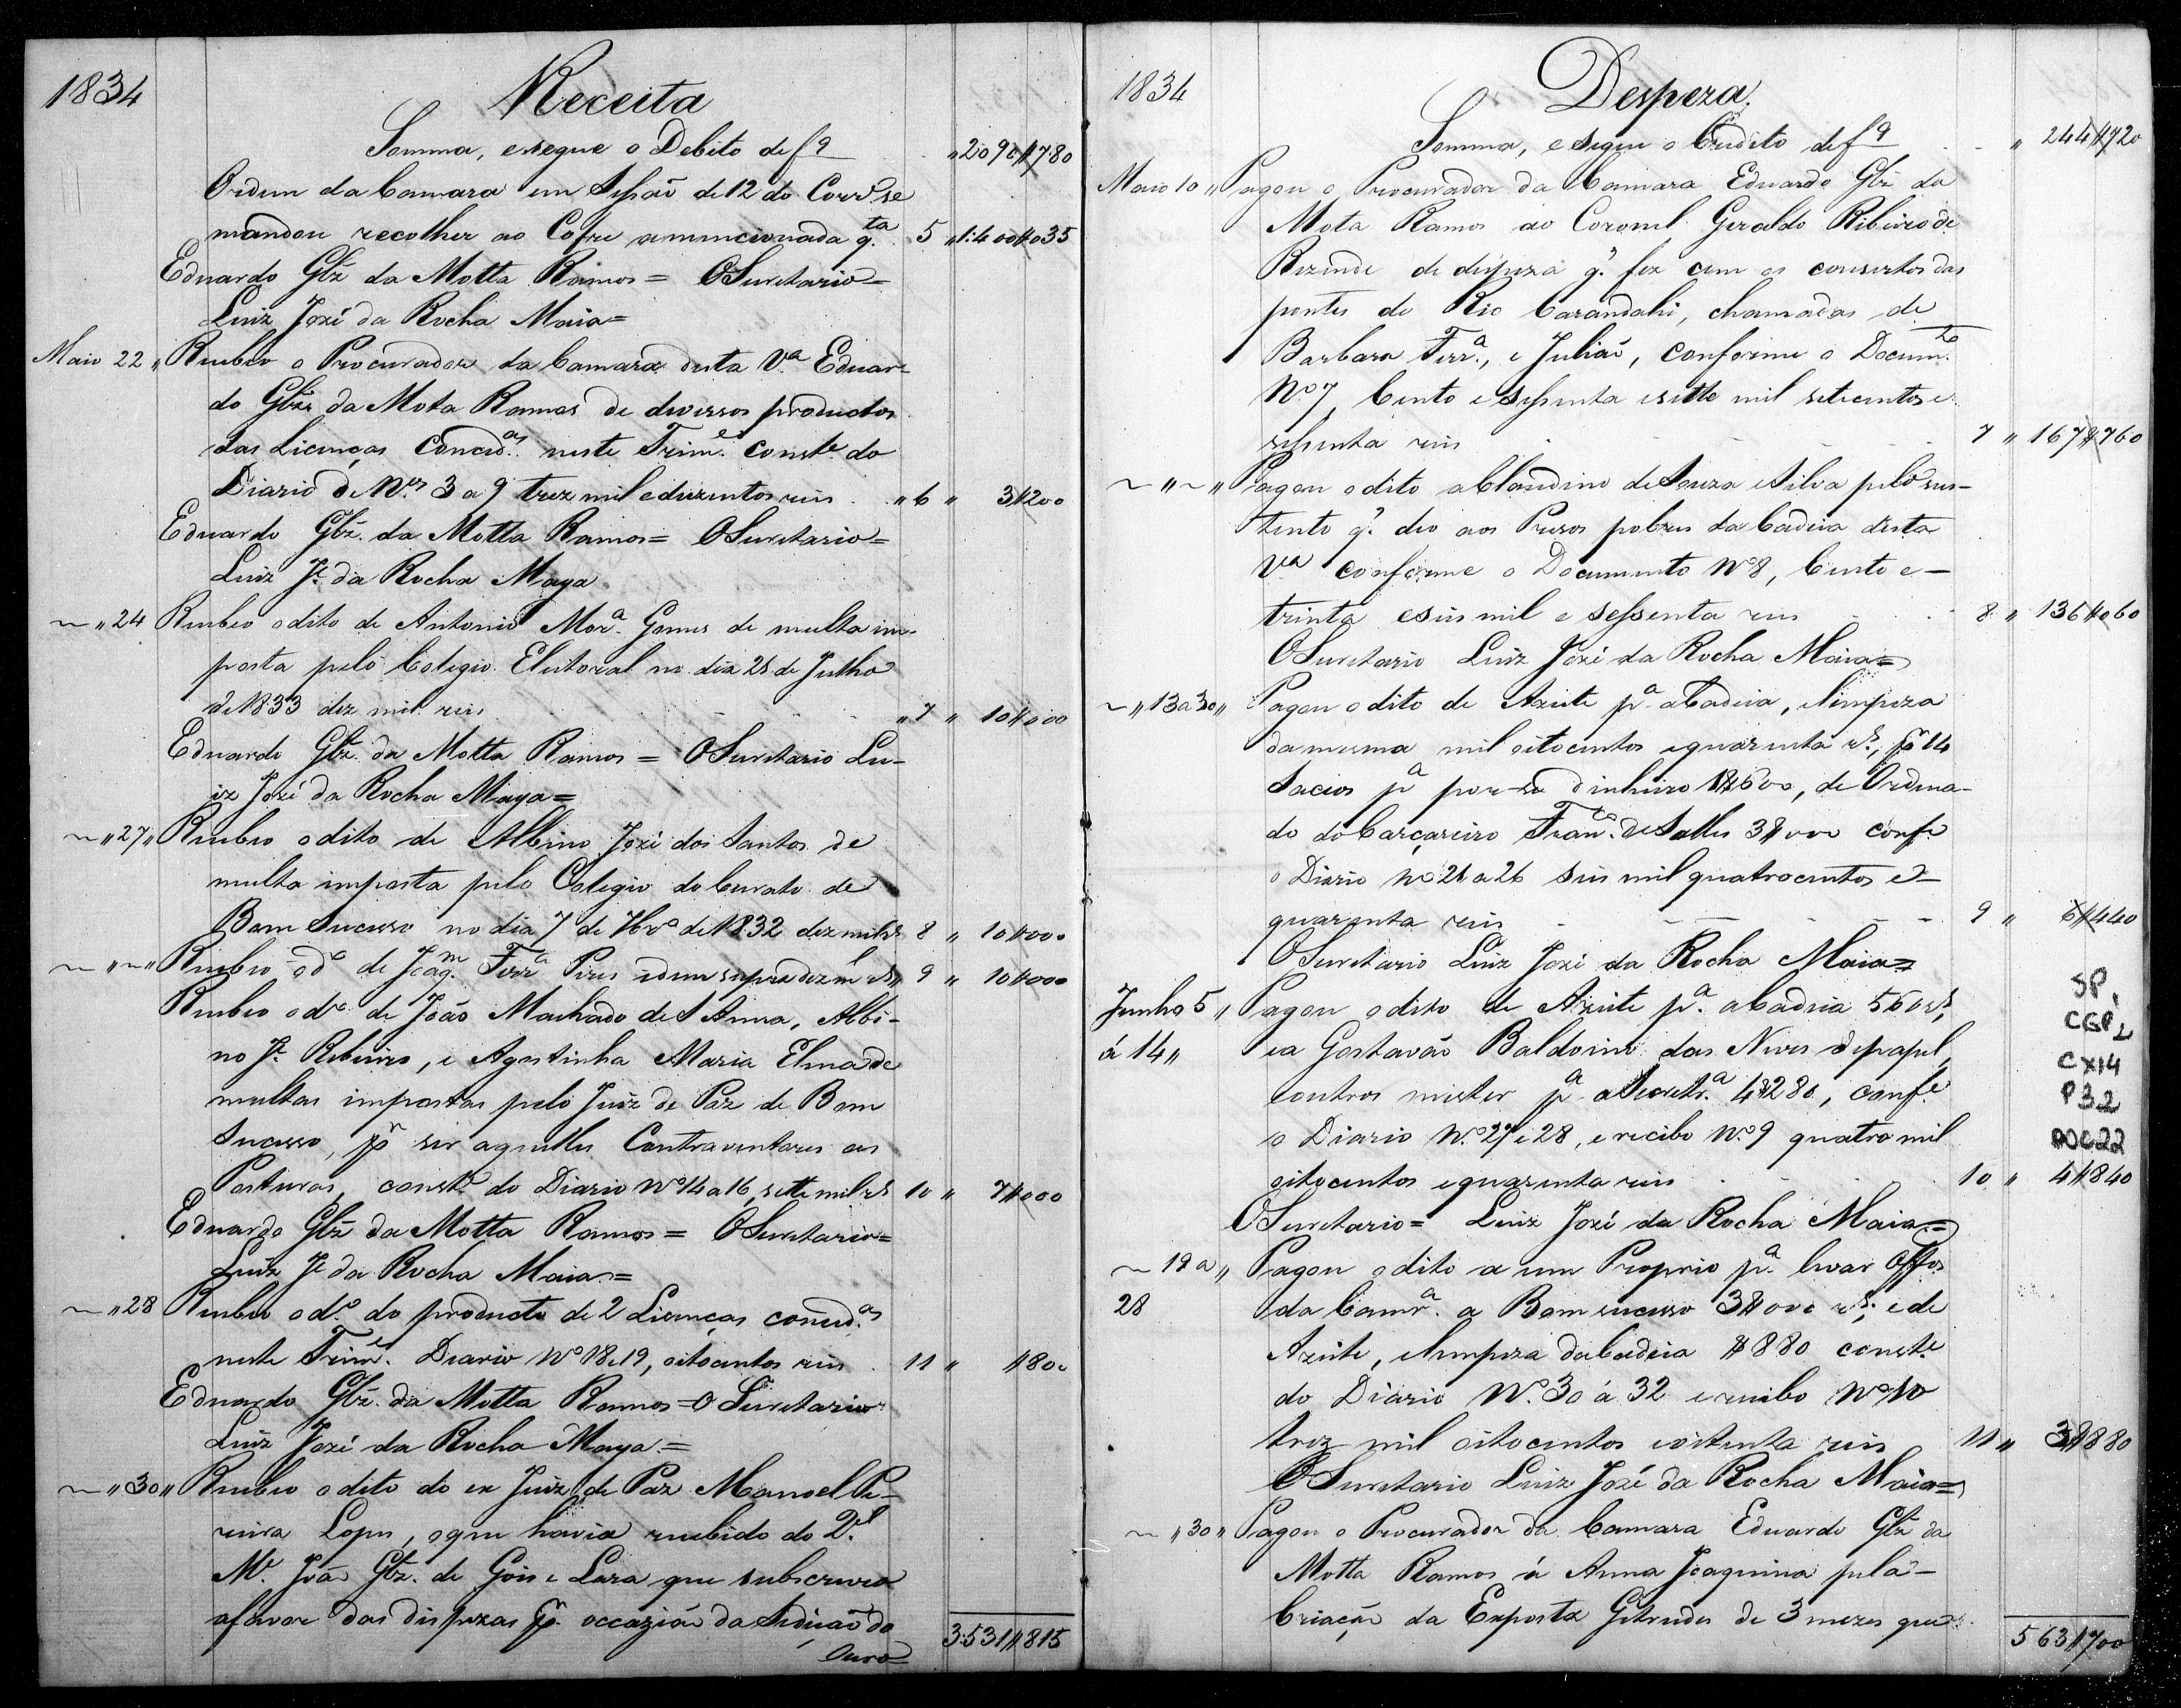 1834
Receita
Somma, e segue o Debito de f 9 " 2:090$780
Ordem da Camara em Sessaõ de 12 do Corre. se
mandou recolher ao Cofre a mencionada q.ta 5 " 1:400$035
Eduardo Glz da Motta Ramos = O Secretario =
Luiz Jozé da Rocha Maia =
Maio 22 " Recebeo o Procurador da Camara desta Va. Eduar-
do Glz da Mota Ramos de diversos productos
das Licenças Conced.as neste Trim.e const.e do
Diario de N.os 3 a 9 trez mil e duzentos reis " 6 " 3$200
Eduardo Glz. da Motta Ramos = O Secretario =
Luiz Je. da Rocha Maya
~ " 24 Recebeo o dito de Antonio Mor.a Gomes de multa im-
posta pelo Colegio Eleitoral no dia 28 de Julho
de 1833 dez mil reis " 7 " 10$000
Eduardo Glz. da Motta Ramos = O Secretario Lu-
iz Jozé da Rocha Maya =
~ " 27 " Recebeo o dito de Albino Jozé dos Santos de
multa imposta pelo Colegio do Curato de
Bom Sucesso no dia 7 de 7br.o de 1832 dez mil rs 8 " 10$000
~ " ~ " Recebeo o d.o de Joaq.m Ferr.a Pires idem supra dez m.l rs " 9 " 10$000
Recebeo o d.o de João Machado de S Anna, Albi-
no Je. Ribeiro, e Agostinha Maria Elena de
multas impostas pelo Juiz de Paz de Bom
Sucesso, pr. ser aquelles Contraventores as
Posturas, const.e do Diario No 14 a 16, sette mil rs 10 " 7$000
Eduardo Glz da Motta Ramos = O Secretario =
Luiz Je da Rocha Maia =
~ " 28 Recebeo o d.o do producto de 2 Licenças conced.as
neste Trim.e Diario No 18 e 19, oitocentos reis 11 " $800
Eduardo Glz. da Motta Ramos = O Secretario
Luiz Jozé da Rocha Maya =
~ " 30 " Recebeo o dito do ex Juiz de Paz Manoel Pe-
reira Lopes, o que havia recebido do
Me. João Glz. de Gois e Lara que subscreveo
a favor das dispezas pr. occazião da Sedição do
Ouro 3:531$815
1834
Despeza
Somma, e segue o Credito de f 9 " 244$720
Maio 10 " Pagou o Procurador da Camara Eduardo Glz da
Mota Ramos ao Coronel Geraldo Ribeiro de
Rezende de dispeza q.e fez com os consertos das
pontes do Rio Carandahi, chamadas de
Barbara Ferr.a, e Juliaõ, conforme o Docum.to
No 7, Cento e sessenta e sette mil setecentos e
sessenta reis 7 " 167$760
~ " ~ " Pagou o dito a Claudino de Souza e Silva pelo sus-
tento q.e deo aos Prezos pobres da Cadeia desta
Va conforme o Documento No 8, Cento e
trinta e seis mil e sessenta reis 8 " 136$060
O Secretario Luiz Jozé da Rocha Maia =
~ " 13 a 30 " Pagou o dito de Azeite p.a a Cadeia, e limpeza
da mesma mil oitocentos e quarenta rs., pr. 14
Sacios p.a por-se dinheiro 1$600, de Ordena-
do do Carcareiro Fran.co de Salles 3$000 conf.e
o Diario No 21 a 26 seis mil quatrocentos e
quarenta reis 9 " 6$440
O Secretario Luiz Jozé da Rocha Maia =
Junho 5 " Pagou o dito de Azeite p.a a Cadeia 560 rs,
á 14 " e a Gostavão Baldoino das Neves de papel,
e outros mister p.a a Secretr.a 4$280, conf.e
o Diario N.o 27 e 28, e recibo N.o 9 quatro mil
oitocentos e quarenta reis 10 " 4$840
O Secretario = Luiz Jozé da Rocha Maia =
~ 19 a " Pagou o dito a um Proprio p.a levar Offos
28 da Camr.a a Bom sucesso 3$000 rs.; e de
Azeite, e limpeza da Cadeia $880 const.e
do Diario No. 30 á 32 e recibo No 10
trez mil oitocentos e oitenta reis 11 " 3$880
O Secretario Luiz Jozé da Rocha Maia =
~ " 30 " Pagou o Procurador da Camara Eduardo Glz da
Motta Ramos á Anna Joaquina pela
Criação da Exposta Getrudes de 3 mezes que
563$700
SP,
CGP 2
CX14
P32
DOC22